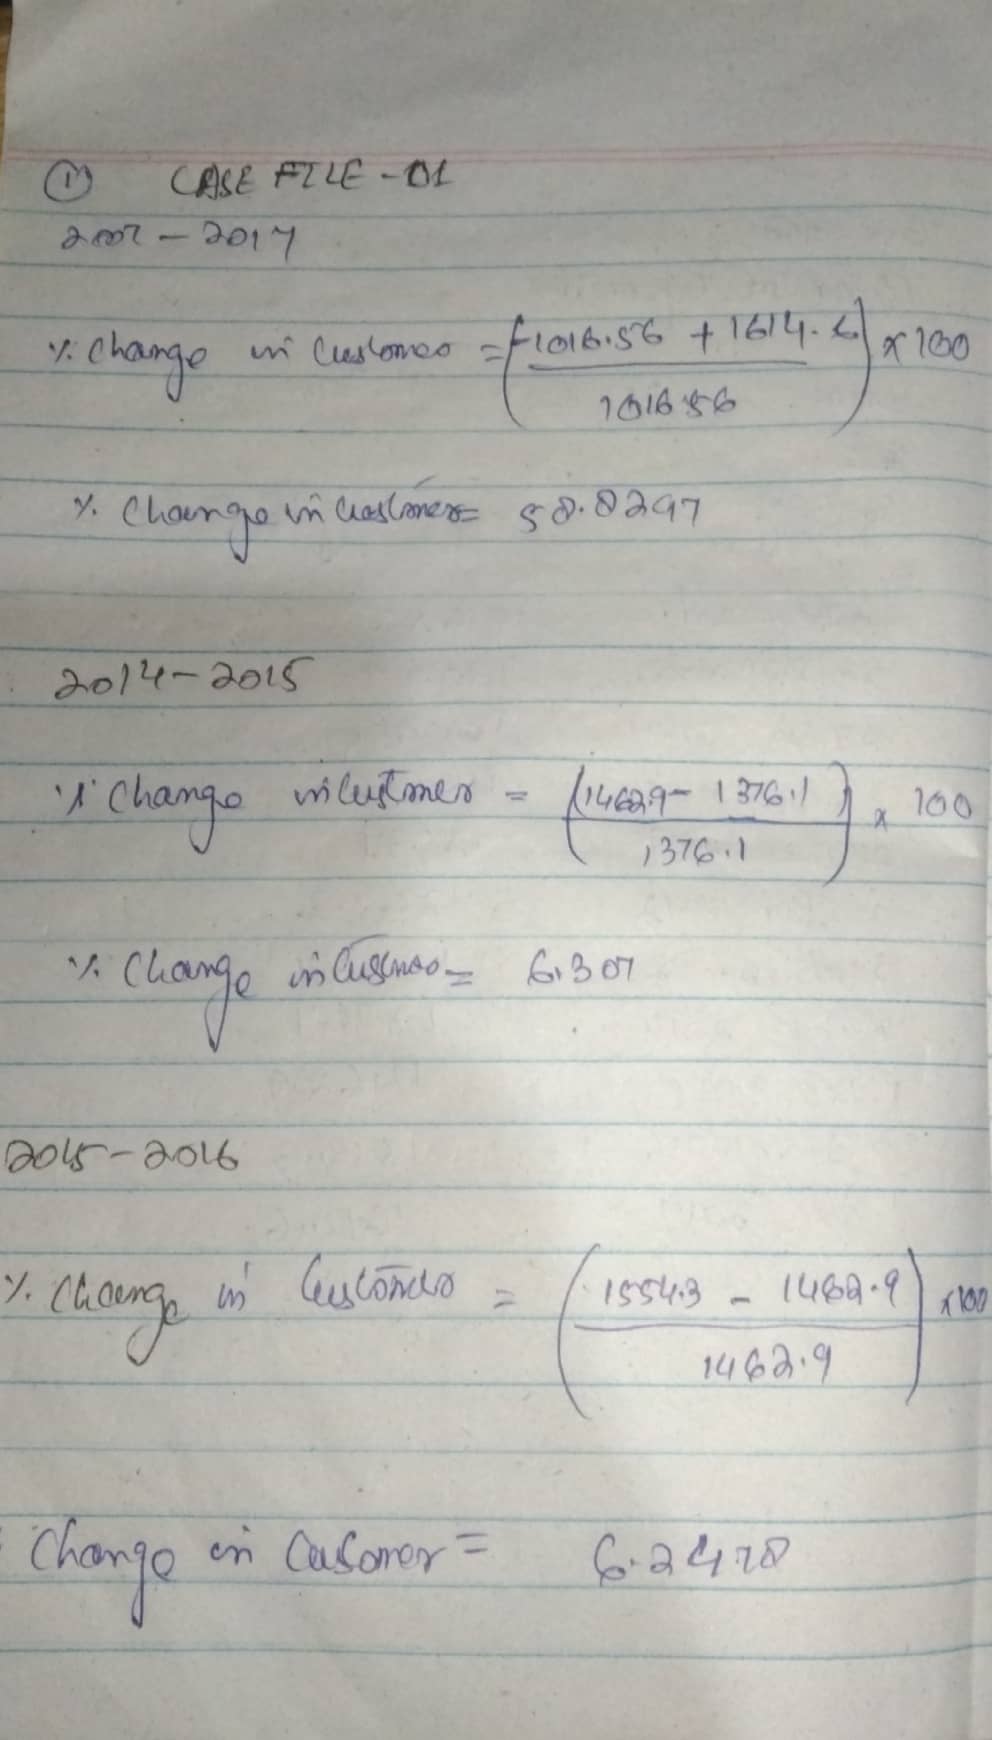 ① CASE FILE - 01
2007 - 2017
% Change in Customer = (-1016.56 + 1614.6 / 1016.56) × 100
% Change in Customer = 58.8297
2014 - 2015
% Change in Customer = (1462.9 - 1376.1 / 1376.1) × 100
% Change in Customer = 6.307
2015 - 2016
% Change in Customer = (1554.3 - 1462.9 / 1462.9) × 100
Change in Customer = 6.2478